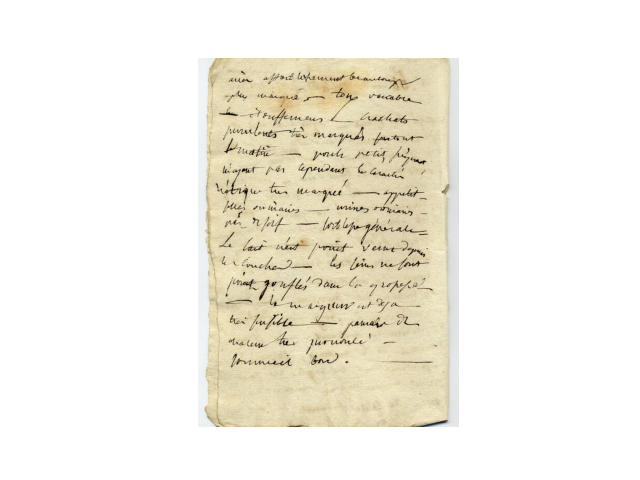 affaiblissement beaucoup
plus marqué – toux
étouffemens – crachats
purulents très marqués surtout
le matin – pouls petit fréquent
n'ayant pas cependant le caractère
très marqué – appetit
ordinaires – urines ordinair-
pas de soif – foiblesse générale –
Le lait n'est point venu depuis
la couche – les seins ne sont
point gonflés dans la grossesse
– la maigreur est deja
très sensible – de
chaleur très prononcé –
sommeil bon. –